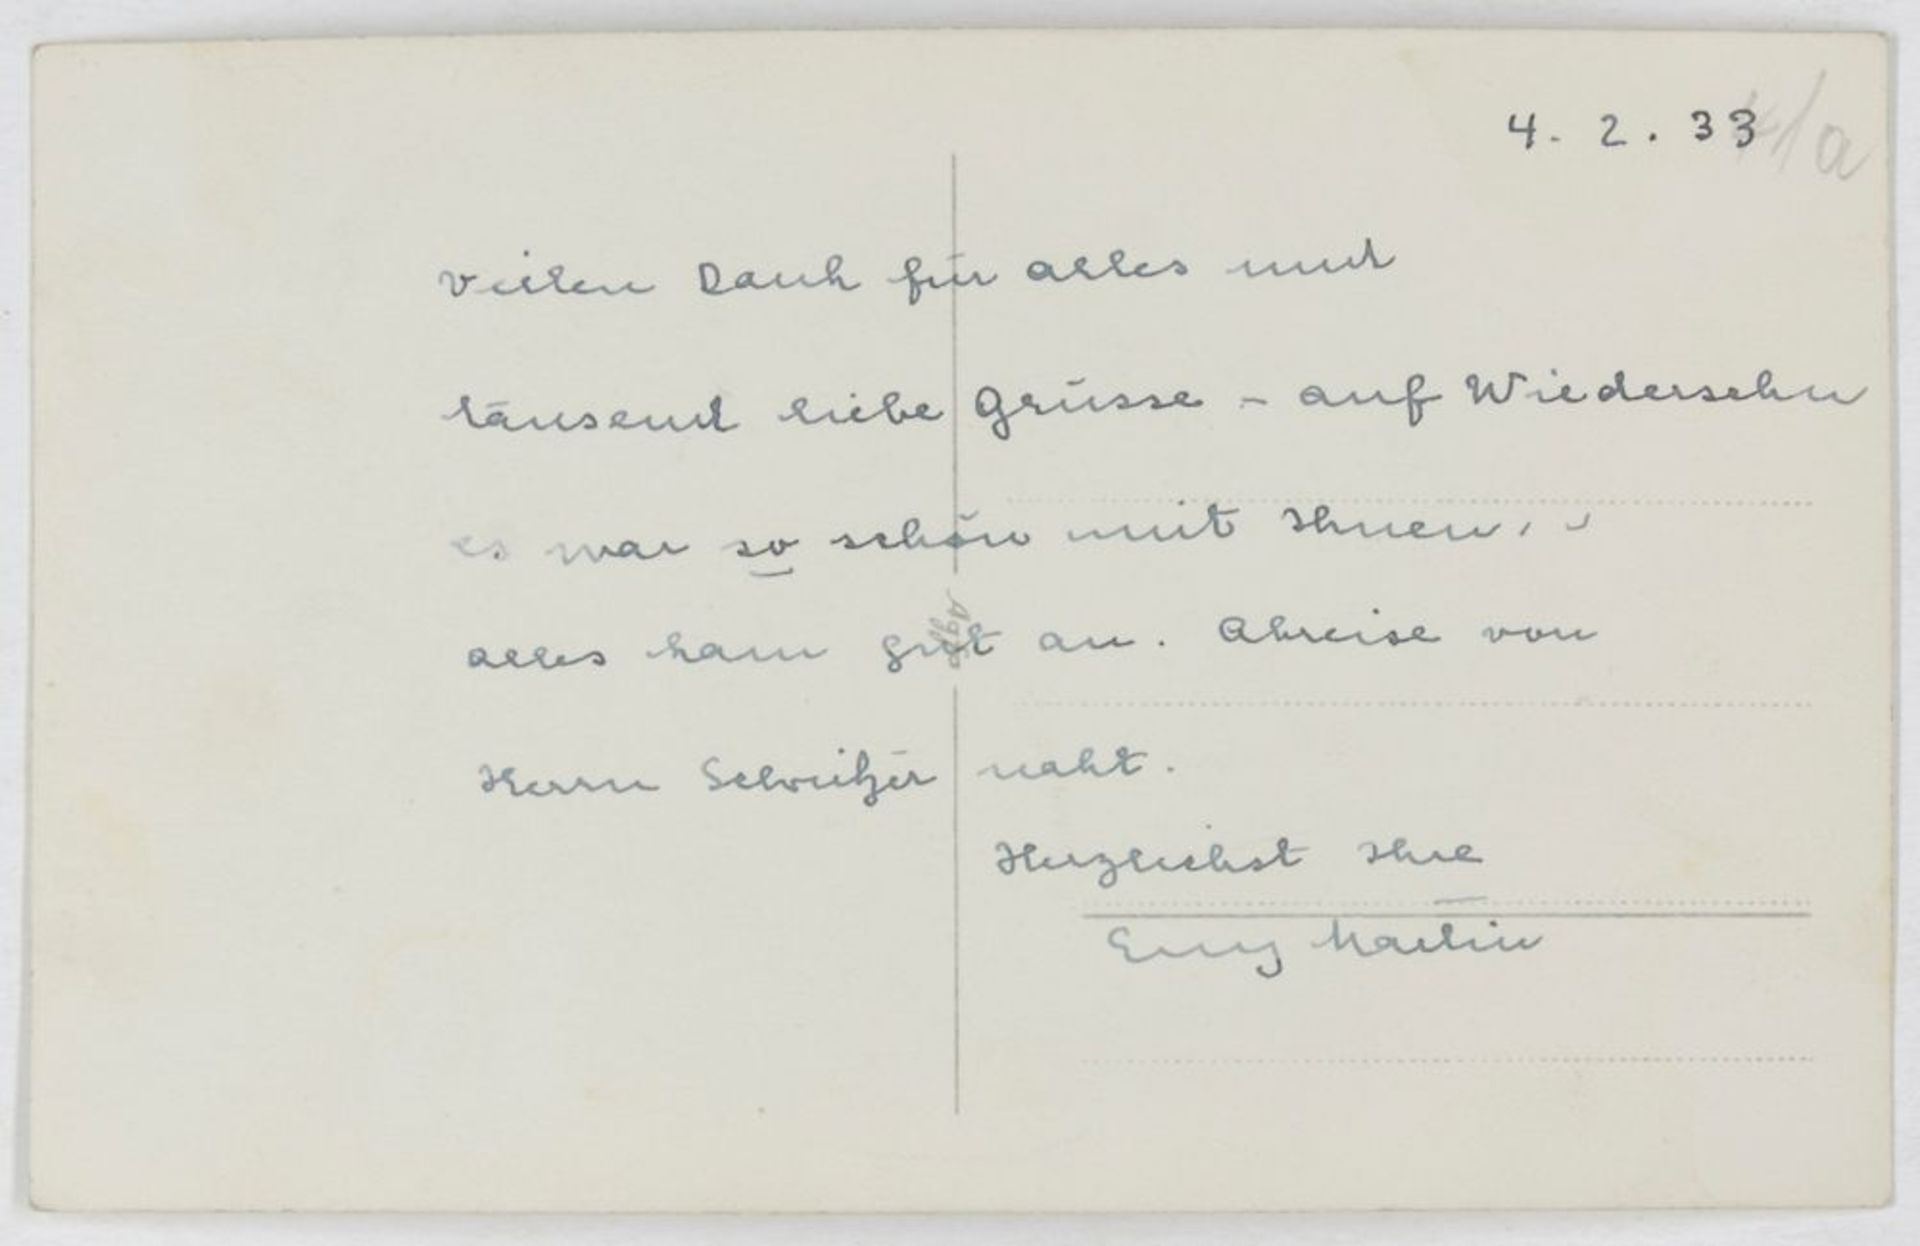 4. 2. 33
41a
Vielen Dank für alles und
tausend liebe Grüsse - auf Wiedersehn
es war so schön mit Ihnen,
alles kam gut an. Abreise von
Herrn Schweitzer naht.
Herzlichst Ihre
Emmy Martin